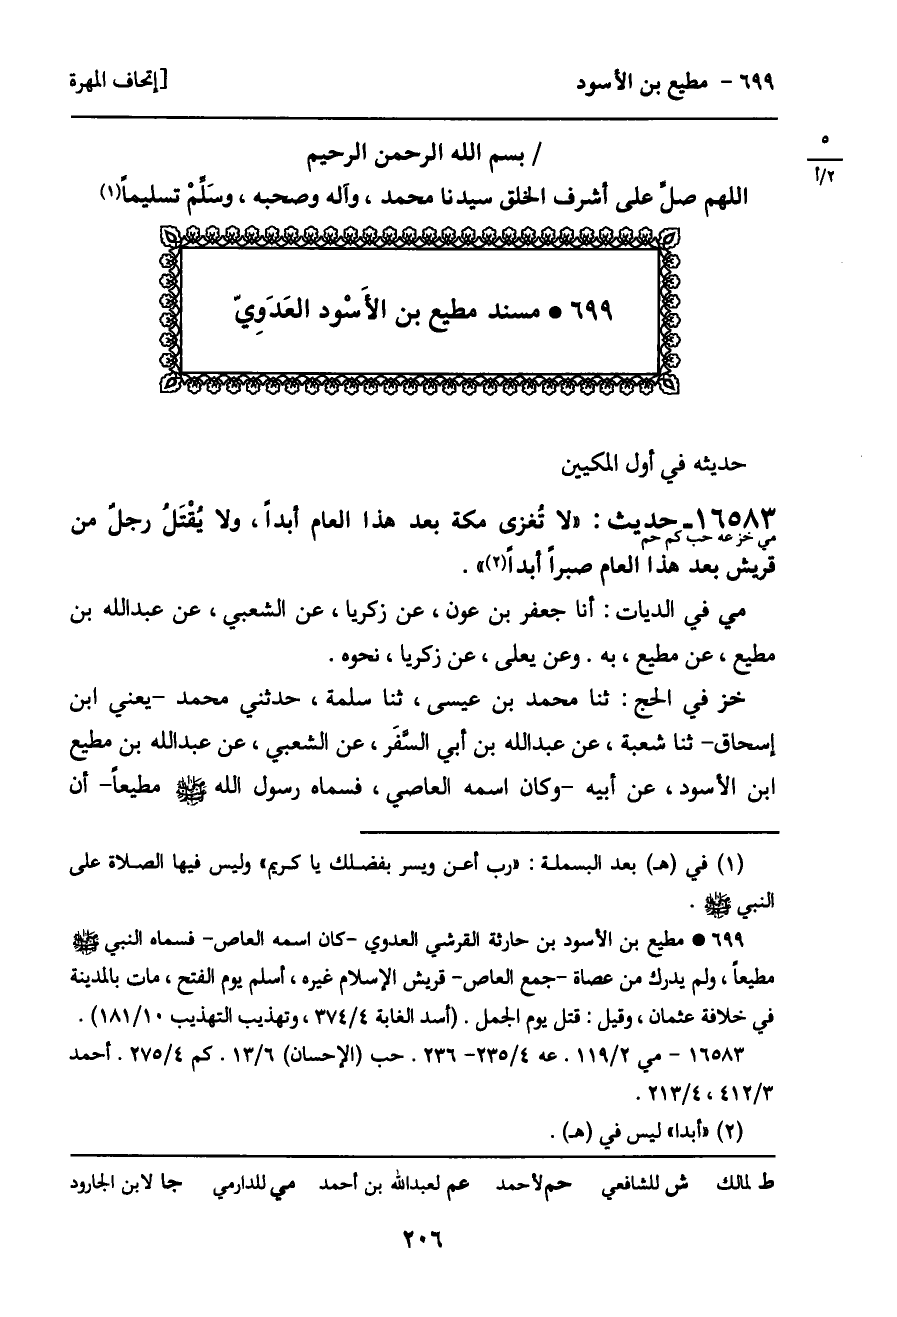 ٦٩٩ - مطيع بن الأسود [إتحاف المهرة
٥
٢/أ
/ بسم الله الرحمن الرحيم
اللهم صلِّ على أشرف الخلق سيدنا محمد ، وآله وصحبه ، وسَلِّمْ تسليماً(١)
٦٩٩ ● مسند مطيع بن الأَسْود العَدَوِيّ
حديثه في أول المكيين
١٦٥٨٣ـ حديث : «لا تُغزى مكة بعد هذا العام أبداً ، ولا يُقْتَلُ رجلٌ من
مي خز عه حب كم حم
قريش بعد هذا العام صبراً أبداً(٢)» .
مي في الديات : أنا جعفر بن عون ، عن زكريا ، عن الشعبي ، عن عبدالله بن
مطيع ، عن مطيع ، به . وعن يعلى ، عن زكريا ، نحوه .
خز في الحج : ثنا محمد بن عيسى ، ثنا سلمة ، حدثني محمد -يعني ابن
إسحاق- ثنا شعبة ، عن عبدالله بن أبي السَّفَر ، عن الشعبي ، عن عبدالله بن مطيع
ابن الأسود ، عن أبيه -وكان اسمه العاصي ، فسماه رسول الله ﷺ مطيعاً- أن
(١) في (هـ) بعد البسملة : «رب أعن ويسر بفضلك يا كريم» وليس فيها الصلاة على
النبي ﷺ .
٦٩٩ ● مطيع بن الأسود بن حارثة القرشي العدوي -كان اسمه العاص- فسماه النبي ﷺ
مطيعاً ، ولم يدرك من عصاة -جمع العاص- قريش الإسلام غيره ، أسلم يوم الفتح ، مات بالمدينة
في خلافة عثمان ، وقيل : قتل يوم الجمل . (أسد الغابة ٣٧٤/٤ ، وتهذيب التهذيب ١٨١/١٠) .
١٦٥٨٣ - مي ١١٩/٢ . عه ٢٣٥/٤- ٢٣٦ . حب (الإحسان) ١٣/٦ . كم ٢٧٥/٤ . أحمد
٤١٢/٣ ، ٢١٣/٤ .
(٢) «أبدا» ليس في (هـ) .
ط لمالك ش للشافعي حم لأحمد عم لعبدالله بن أحمد مي للدارمي جا لابن الجارود
٢٠٦